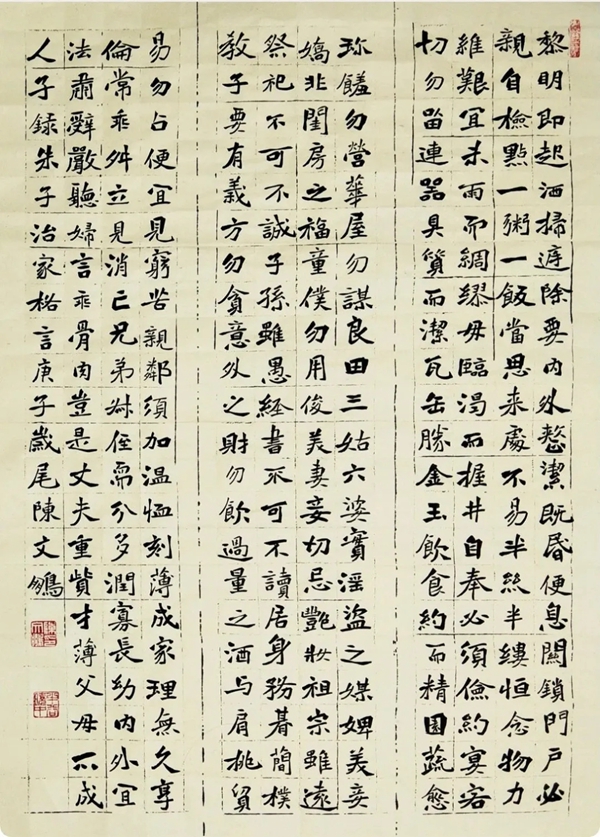 黎明即起洒掃庭除要内外整潔既昏便息關鎖門戶必
親自檢點一粥一飯當思来處不易半絲半縷恒念物力
維艱宜未雨而綢繆毋臨渴而掘井自奉必須儉約宴客
切勿留連器具質而潔瓦缶勝金玉飲食約而精園蔬愈
珎饈勿營華屋勿謀良田三姑六婆實淫盗之媒婢美妾
嬌非閨房之福童僕勿用俊美妻妾切忌艷妝祖宗雖遠
祭祀不可不誠子孫雖愚經書不可不讀居身務碁簡樸
教子要有義方勿貪意外之財勿飲過量之酒与肩挑貿
易勿占便宜見窮苦親鄰須加温恤刻薄成家理無久享
倫常乖舛立見消亡兄弟叔侄需分多潤寡長幼内外宜
法肅辭嚴聽婦言乖骨肉豈是丈夫重貲才薄父母不成
人子録朱子治家格言庚子歲尾陳文鵬